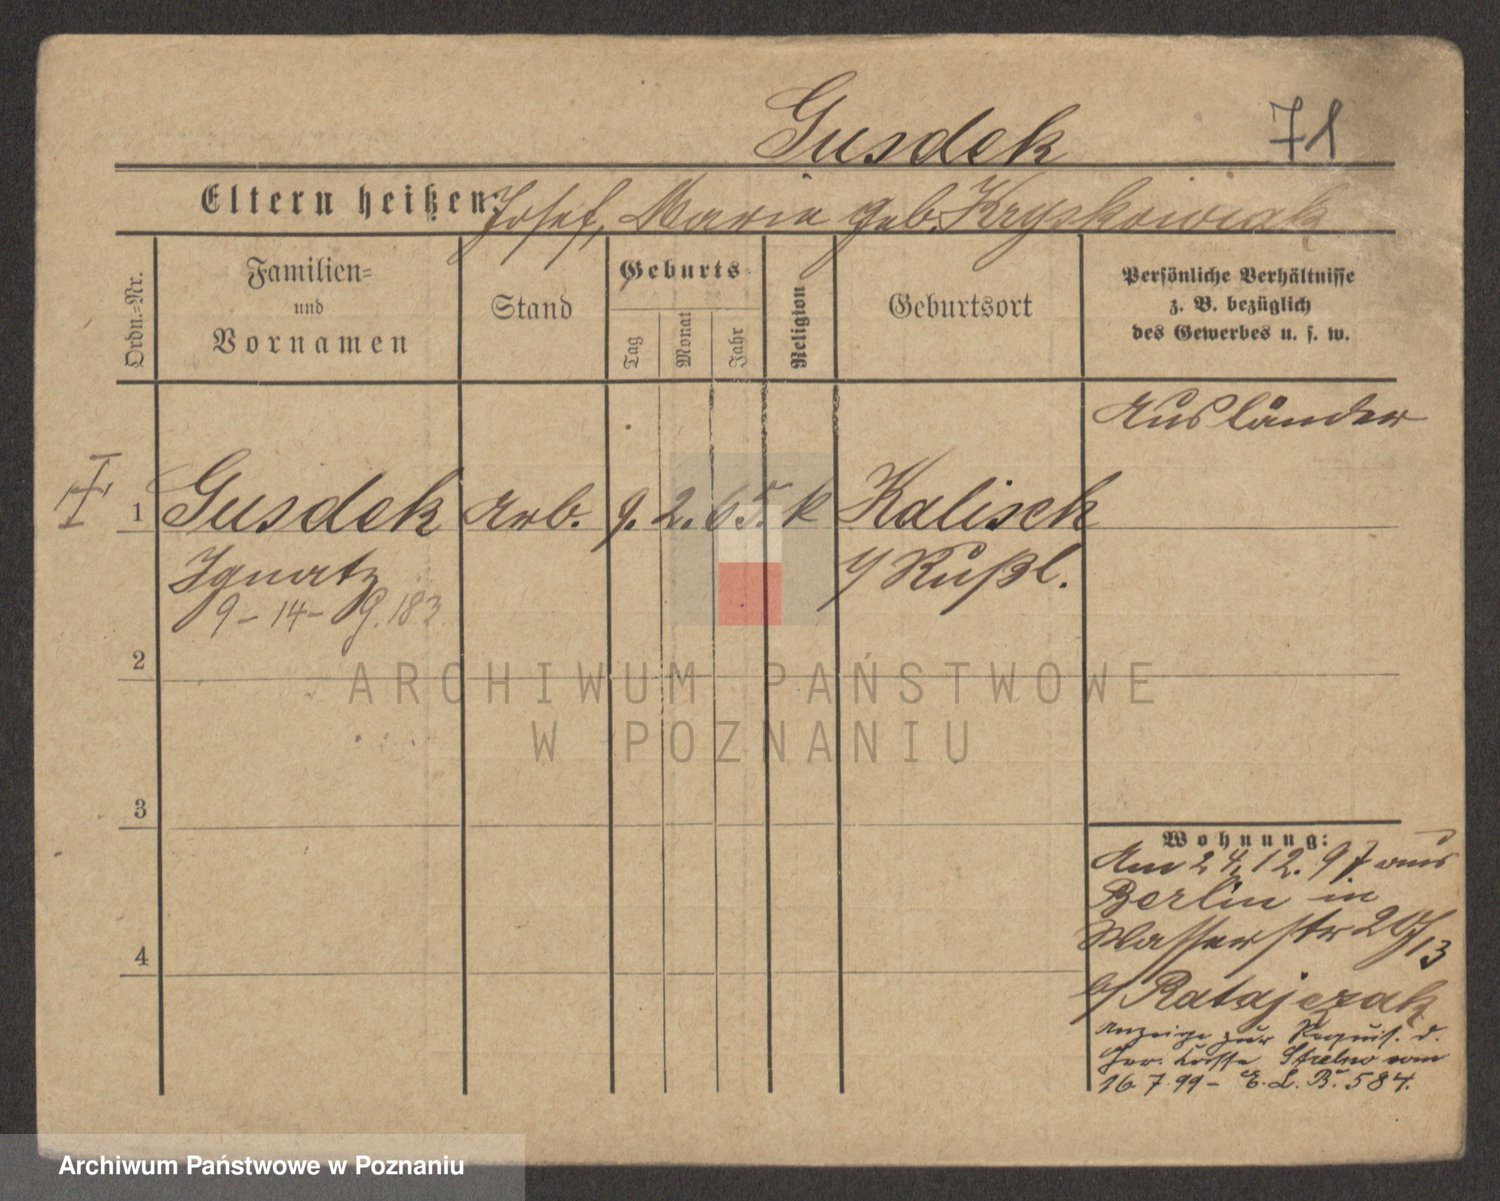 Gusdek 71
Eltern heißen: Josef, Marie geb. Kryskowiak
Ordn.=Nr.
Familien=
und
Vornamen
Stand
Geburts=
Tag
Monat
Jahr
Religion
Geburtsort
Persönliche Verhältnisse
z. B. bezüglich
des Gewerbes u. s. w.
Ausländer
1 Gusdek Arb. 9. 2. 65. k Kalisch
Ignatz
i/ Rußl.
9 - 14 - G. 183
2
ARCHIWUM PAŃSTWOWE
W POZNANIU
3
4
Wohnung:
Am 24.12.97 aus
Berlin in
Wasserstr
b/ Ratajczak
Anzeige zur Requis. d.
Strelno vom
16.7.99 - E. L. B. 584.
Archiwum Państwowe w Poznaniu